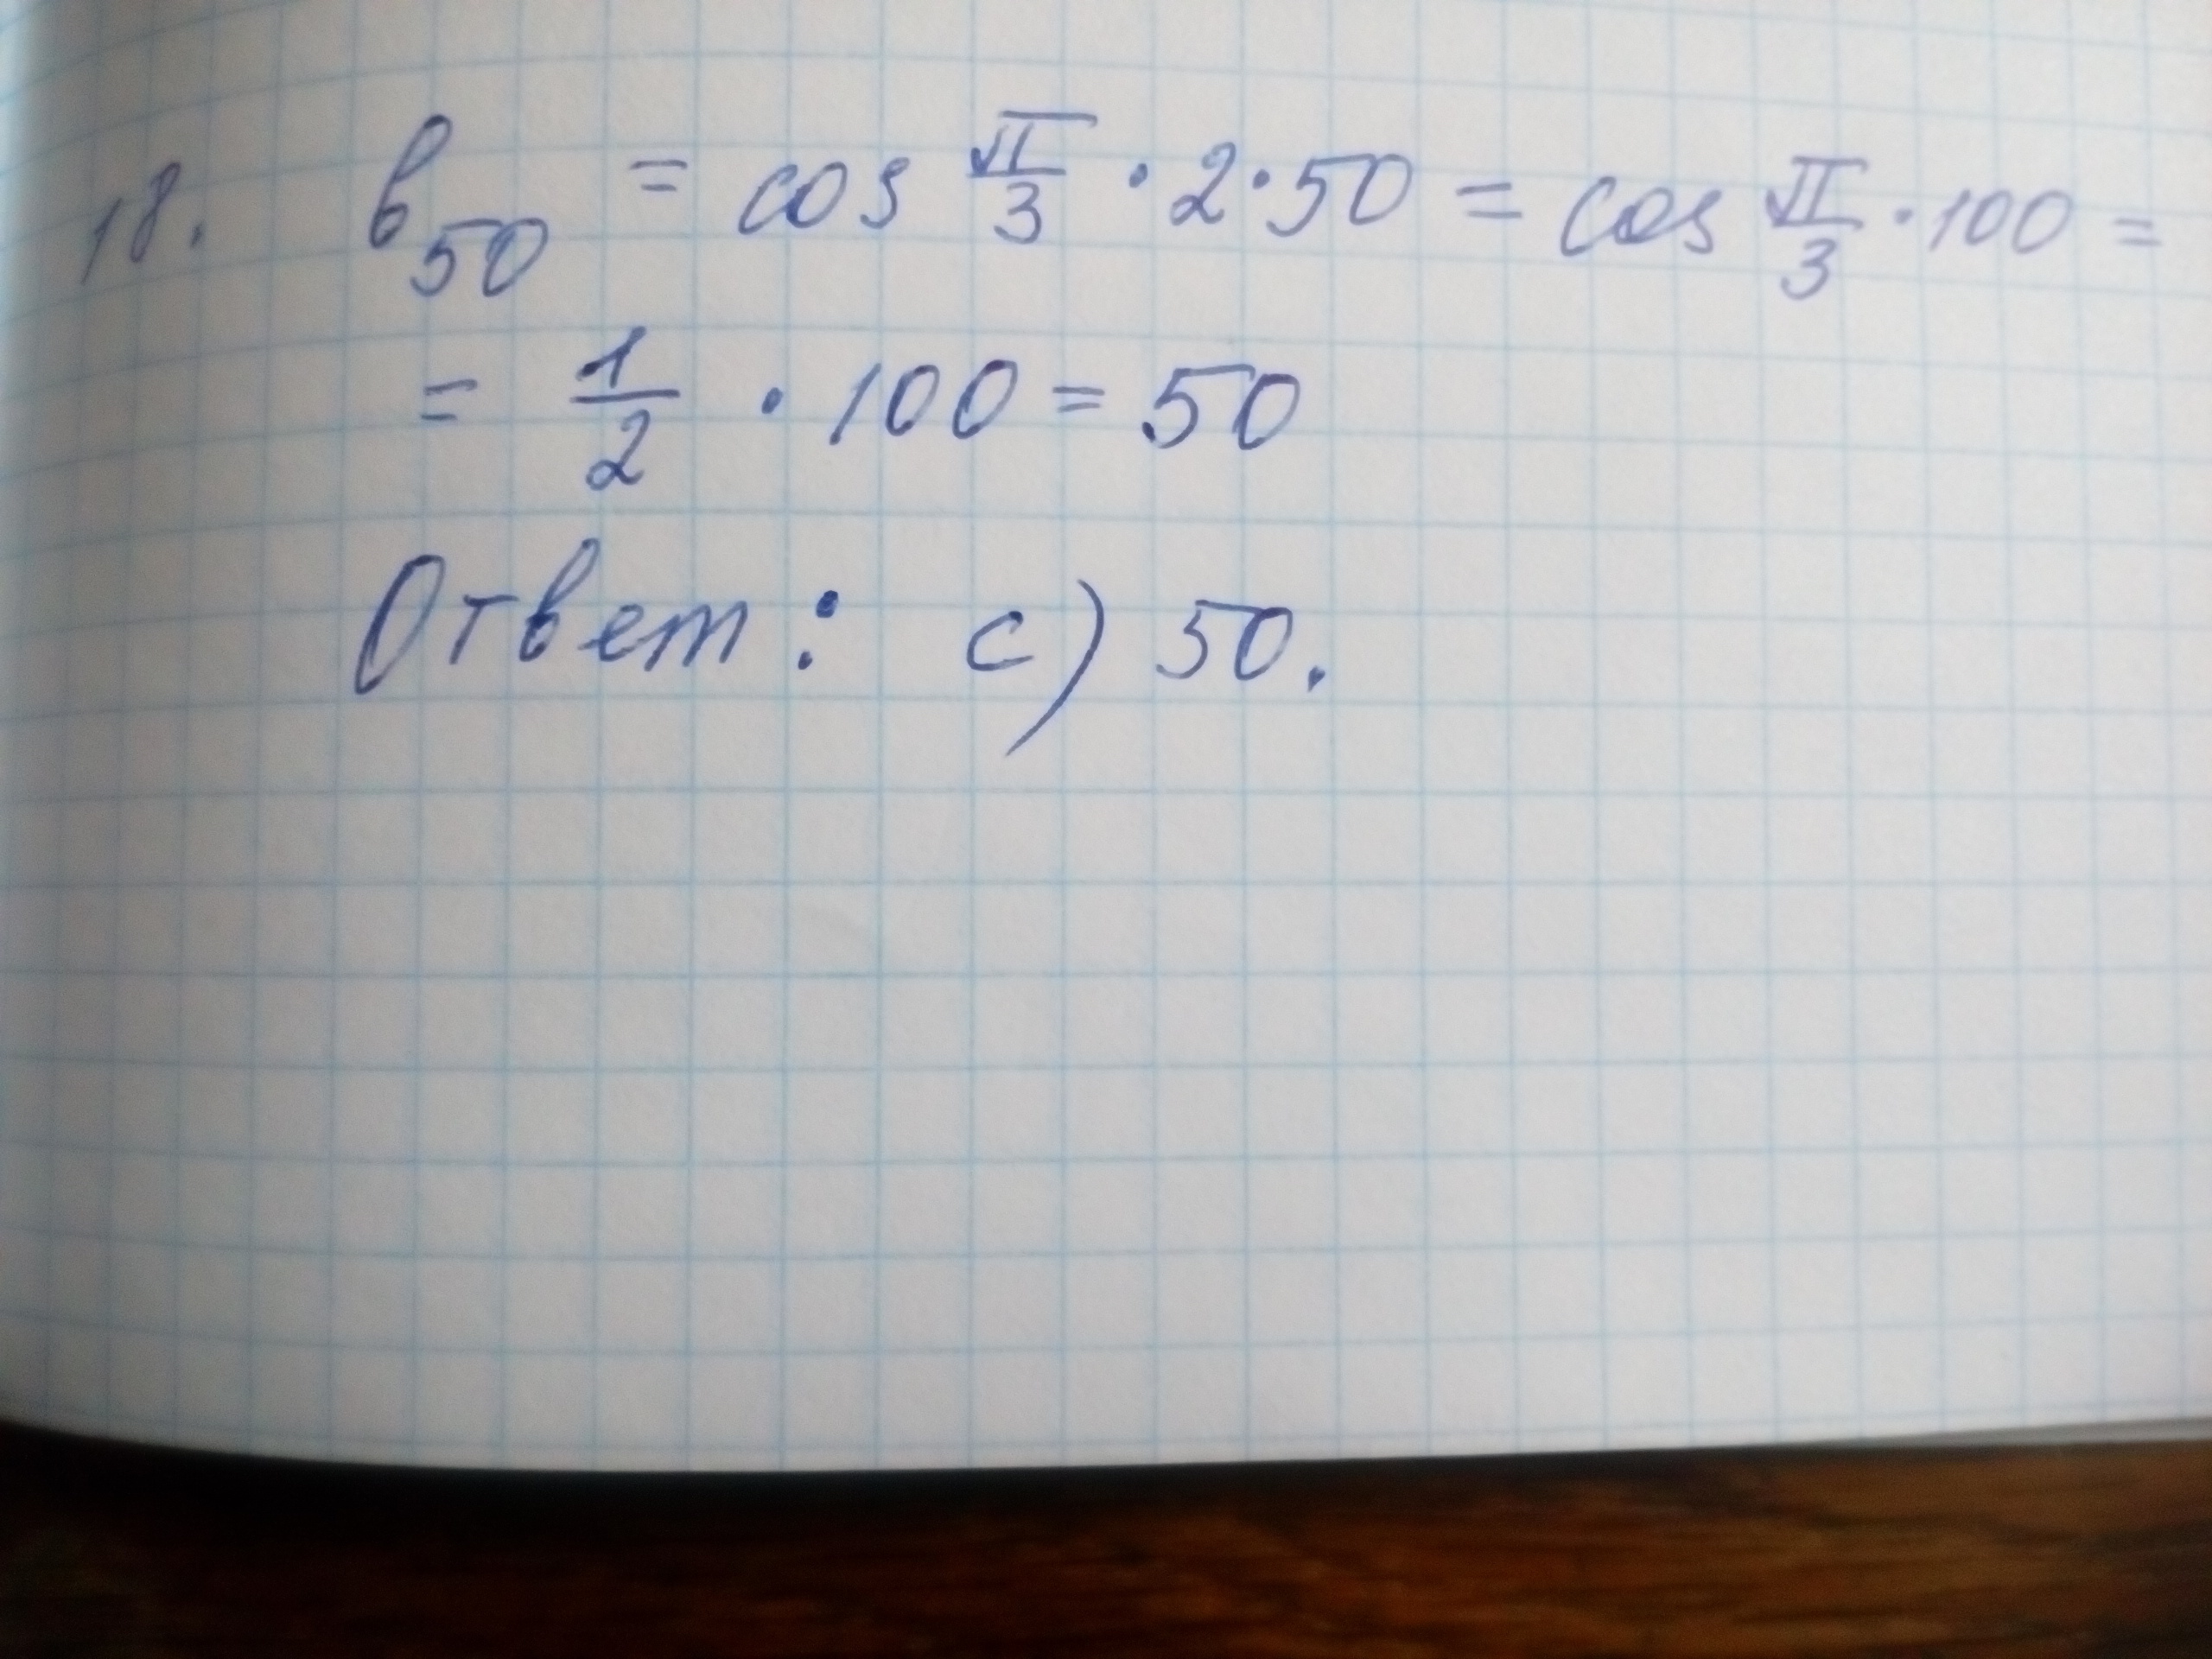 18. в₅₀ = cos π/3 · 2 · 50 = cos π/3 · 100 =
= 1/2 · 100 = 50
Ответ: с) 50.